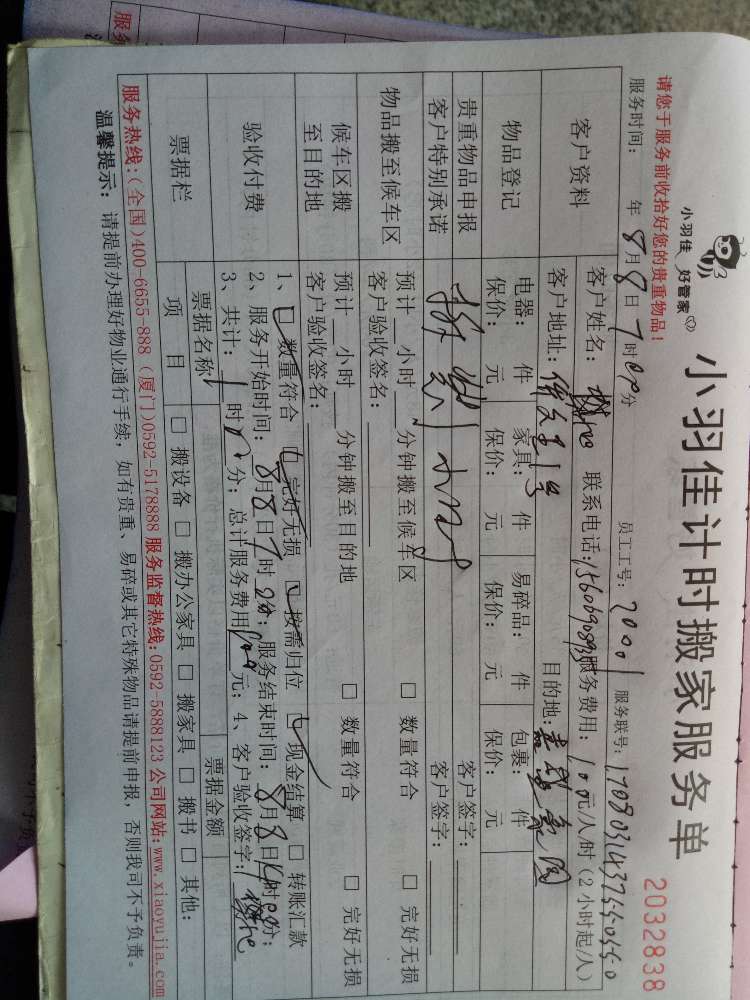 小羽佳 好管家
小羽佳计时搬家服务单
2032838
请您于服务前收拾好您的贵重物品！
员工工号： 服务联号：
服务时间： 年8月8日7时00分
客户资料
客户姓名： 联系电话： 服务费用：100元/人/时（2小时起/人）
客户地址： 目的地：
物品登记
电器： 件 家具： 件 易碎品： 件 包裹： 件
保价： 元 保价： 元 保价： 元 保价： 元
贵重物品申报 客户签字：
客户特别承诺 客户签字：
物品搬至候车区
预计 小时 分钟搬至候车区 □ 数量符合 □ 完好无损
客户验收签名：
候车区搬
至目的地
预计 小时 分钟搬至目的地 □ 数量符合 □ 完好无损
客户验收签名：
验收付费
1、□ 数量符合 □ 完好无损 □ 按需归位 □ 现金结算 □ 转账汇款
2、服务开始时间：8月8日7时 分；服务结束时间：8月8日 时 分；
3、共计： 时 分；总计服务费用 元；4、客户验收签字：
票据栏
票据名称 票据金额
项 目 □ 搬设备 □ 搬办公家具 □ 搬家具 □ 搬书 □ 其他：
服务热线：(全国)400-6655-888 (厦门)0592-5178888 服务监督热线：0592-5888123 公司网站：www.xiaoyujia.com
温馨提示： 请提前办理好物业通行手续，如有贵重、易碎或其它特殊物品请提前申报，否则我司不予负责。